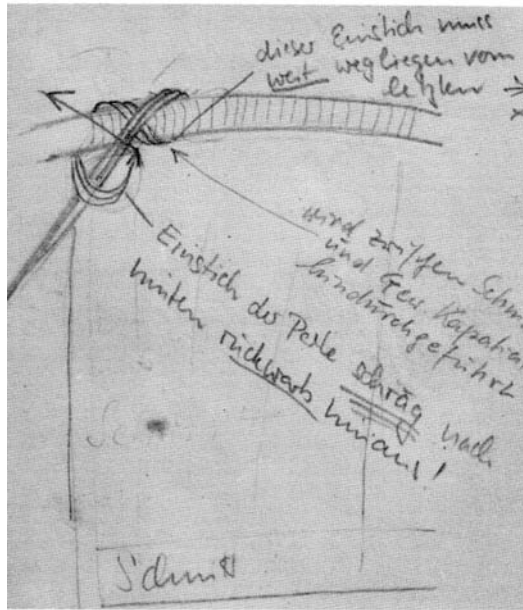 dieser Einstich muss
weit wegliegen vom
letzten
wird zwischen Schn
und Gew. Kapital
hindurchgeführt
Einstich der Perle schräg nach
hinten rückwärts hinaus!
Schnitt